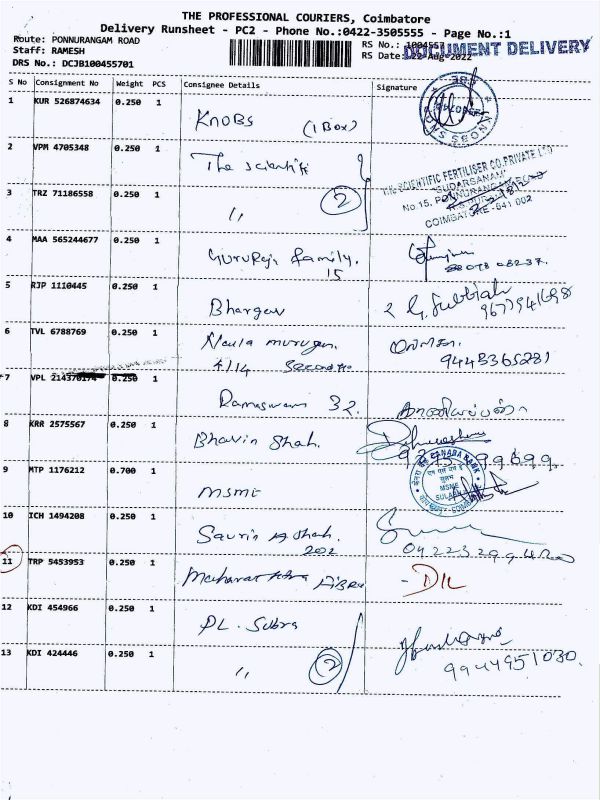 THE PROFESSIONAL COURIERS, Coimbatore
Delivery Runsheet - PC2 - Phone No.:0422-3505555 - Page No.:1
Route: PONNURANGAM ROAD
RS No.: 1004557
DOCUMENT DELIVERY
Staff: RAMESH
RS Date: 22-Aug-2022
DRS No.: DCJB100455701
S No Consignment No Weight PCS Consignee Details Signature
1 KUR 526874634 0.250 1 KNOBS (1 Box)
2 VPM 4705348 0.250 1 The scientifi
THE SCIENTIFIC FERTILISER CO.PRIVATE LTD
'SUDARSANAM'
3 TRZ 71186558 0.250 1 〃 2
No 15,
COIMBATORE - 641 002
4 MAA 565244677 0.250 1 Gururaja family.
15
5 RJP 1110445 0.250 1 Bhargav G. Subbiah
9677941698
6 TVL 6788769 0.250 1 murugan.
4/14 Second
9443365281
7 VPL 0.250 1 Ramaswami 32.
8 KRR 2575567 0.250 1 Bhavin Shah.
CANARA BANK
9 MTP 1176212 0.700 1 MSME
MSME
SULABH
10 ICH 1494208 0.250 1 Savrin A Shah.
202
11 TRP 5453953 0.250 1 Maharashtra Fibre - DIL
12 KDI 454966 0.250 1 PL. Subra
13 KDI 424446 0.250 1 〃 2
9944951030.